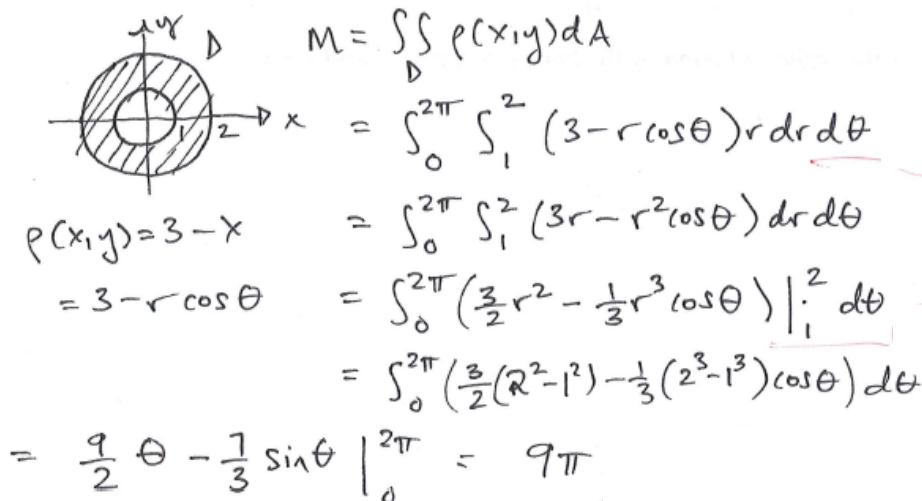 y D
1 2 x
M = ∬_D ρ(x,y) dA
= ∫_0^{2π} ∫_1^2 (3 - r cos θ) r dr dθ
ρ(x,y) = 3 - x
= ∫_0^{2π} ∫_1^2 (3r - r^2 cos θ) dr dθ
= 3 - r cos θ
= ∫_0^{2π} (3/2 r^2 - 1/3 r^3 cos θ) |_1^2 dθ
= ∫_0^{2π} (3/2 (2^2 - 1^2) - 1/3 (2^3 - 1^3) cos θ) dθ
= 9/2 θ - 7/3 sin θ |_0^{2π} = 9π